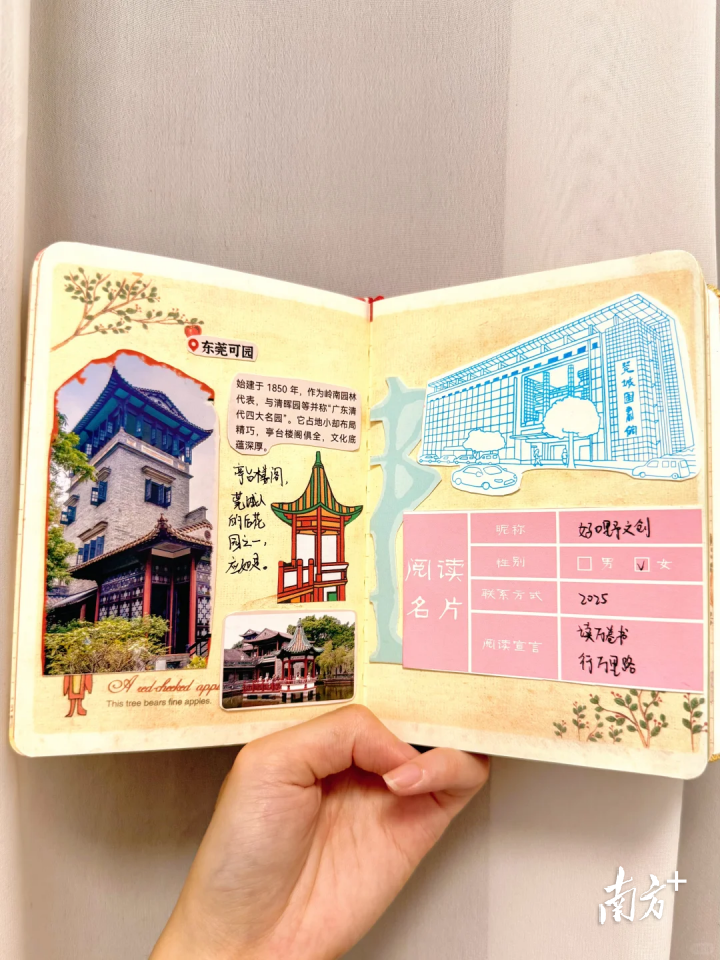 东莞可园
始建于 1850 年，作为岭南园林
代表，与清晖园等并称“广东清
代四大名园”。它占地小却布局
精巧，亭台楼阁俱全，文化底
蕴深厚。
亭台楼阁，
莞城人
的后花
园之一，
应如是。
A red-cheeked app
This tree bears fine apples.
莞城图书馆
阅读
名片
昵称 好嘢文创
性别 男 √ 女
联系方式 2025
阅读宣言 读万卷书
行万里路
南方+